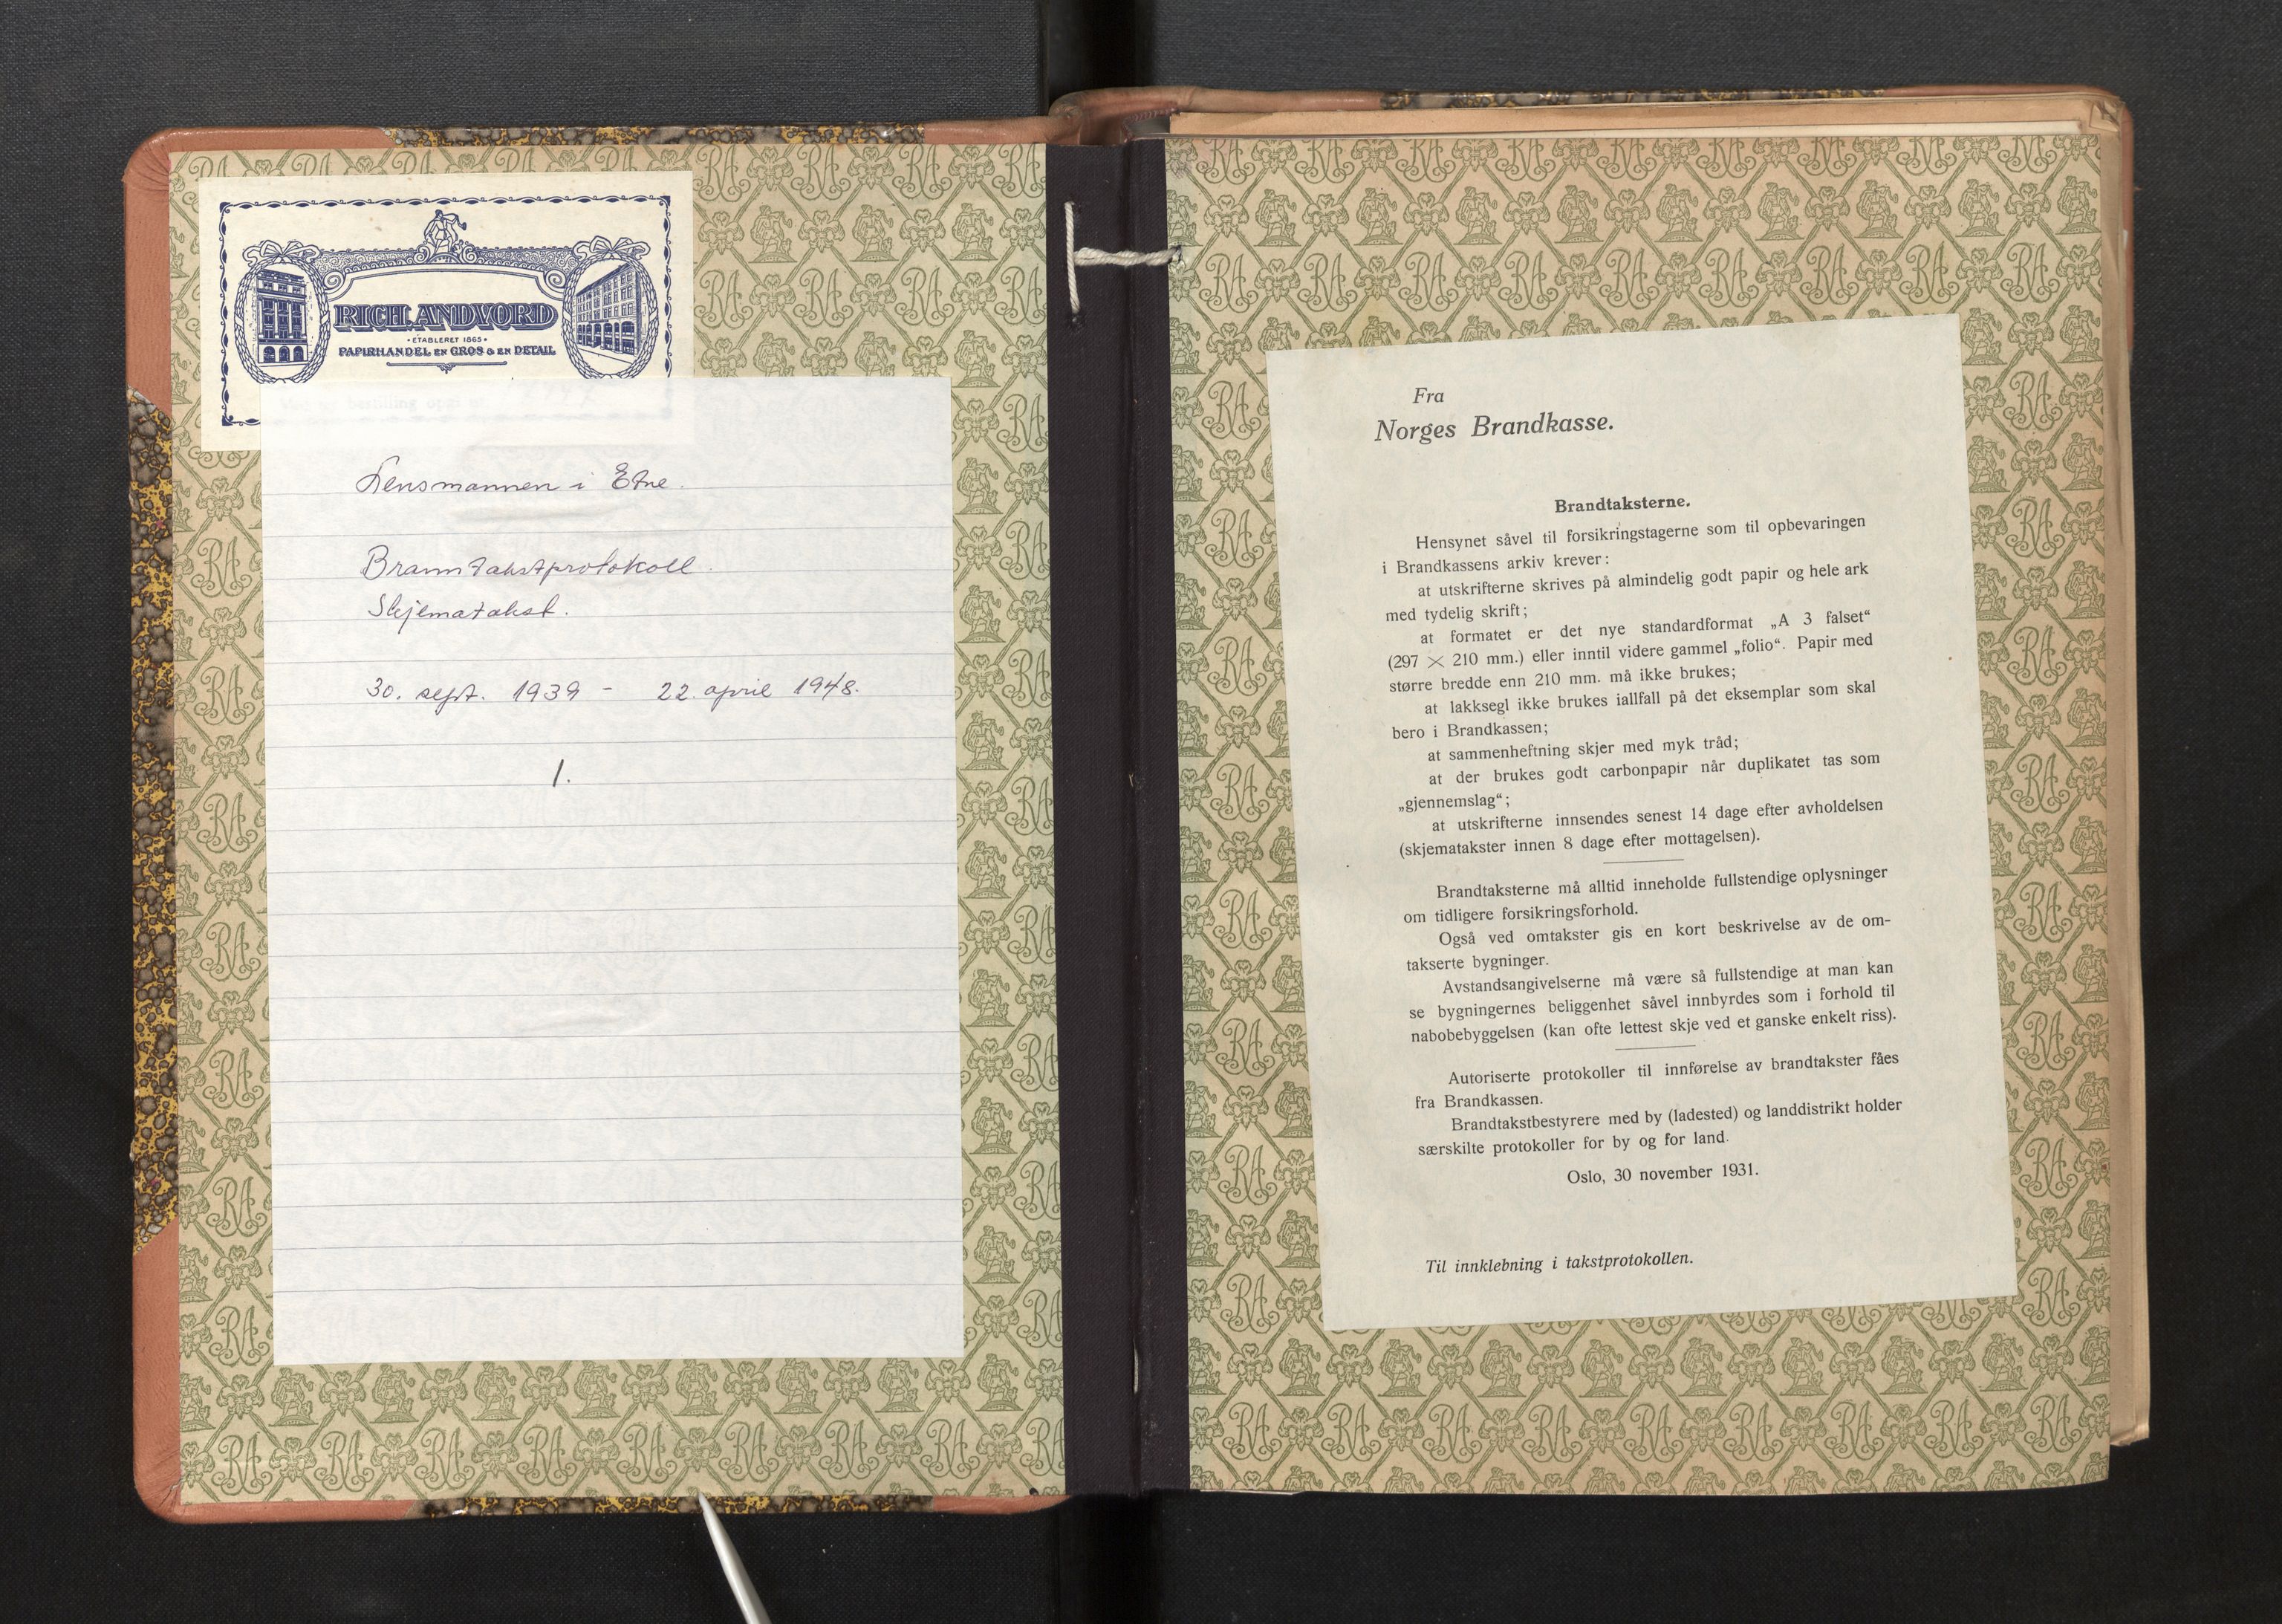 RICH. ANDVORD
• ETABLERET 1865 •
PAPIRHANDEL EN GROS & EN DETAIL
bestilling
Lensmannen i Etne.
Branntakstprotokoll.
Skjematakst.
30. sept. 1939 - 22. april 1948.
1.
Fra
Norges Brandkasse.
Brandtaksterne.
Hensynet såvel til forsikringstagerne som til opbevaringen
i Brandkassens arkiv krever:
at utskrifterne skrives på almindelig godt papir og hele ark
med tydelig skrift;
at formatet er det nye standardformat „A 3 falset“
(297 × 210 mm.) eller inntil videre gammel „folio“. Papir med
større bredde enn 210 mm. må ikke brukes;
at lakksegl ikke brukes iallfall på det eksemplar som skal
bero i Brandkassen;
at sammenheftning skjer med myk tråd;
at der brukes godt carbonpapir når duplikatet tas som
„gjennemslag“;
at utskrifterne innsendes senest 14 dage efter avholdelsen
(skjematakster innen 8 dage efter mottagelsen).
Brandtaksterne må alltid inneholde fullstendige oplysninger
om tidligere forsikringsforhold.
Også ved omtakster gis en kort beskrivelse av de om-
takserte bygninger.
Avstandsangivelserne må være så fullstendige at man kan
se bygningernes beliggenhet såvel innbyrdes som i forhold til
nabobebyggelsen (kan ofte lettest skje ved et ganske enkelt riss).
Autoriserte protokoller til innførelse av brandtakster fåes
fra Brandkassen.
Brandtakstbestyrere med by (ladested) og landdistrikt holder
særskilte protokoller for by og for land.
Oslo, 30 november 1931.
Til innklebning i takstprotokollen.